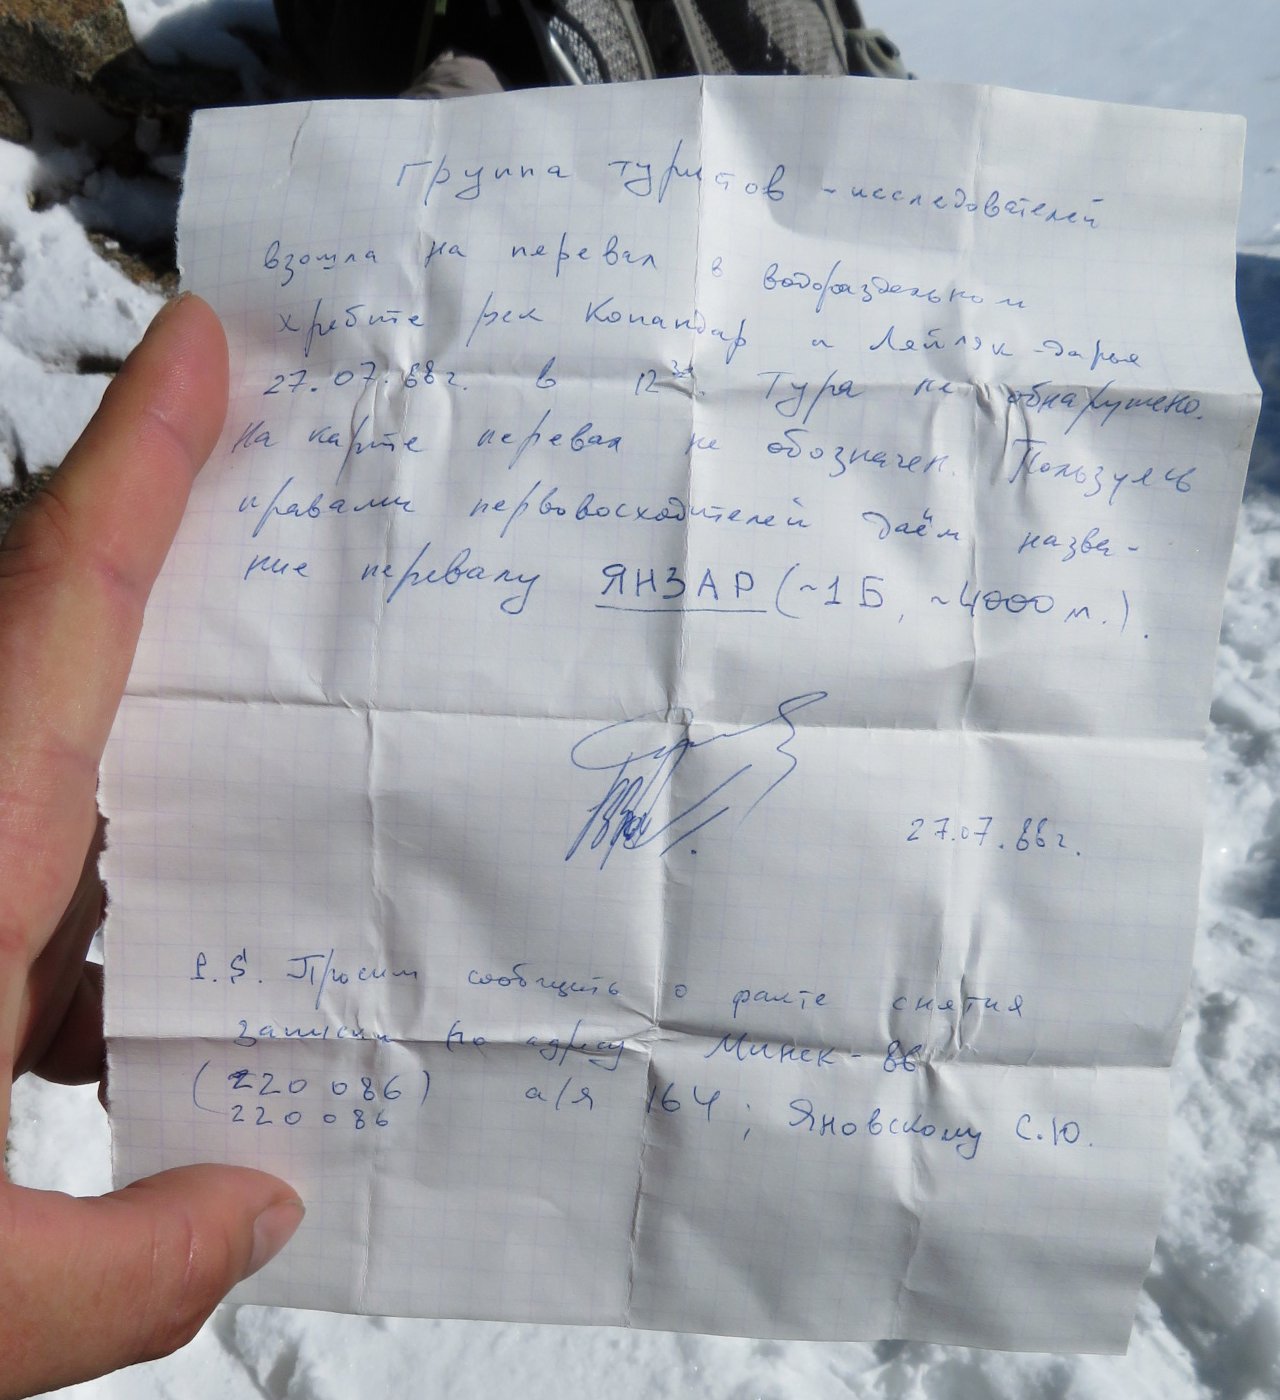 Группа туристов - исследователей
взошла на перевал в водораздельном
хребте рек Копандар и Ляйляк-дарья
27.07.88г. в 12³⁰. Тура не обнаружено.
На карте перевал не обозначен. Пользуясь
правами первовосходителей даём назва-
ние перевалу ЯНЗАР (~1Б, ~4000 м.).
27.07.88г.
P.S. Просим сообщить о факте снятия
записки по адресу Минск-86
(220 086) а/я 164; Яновскому С.Ю.
220086